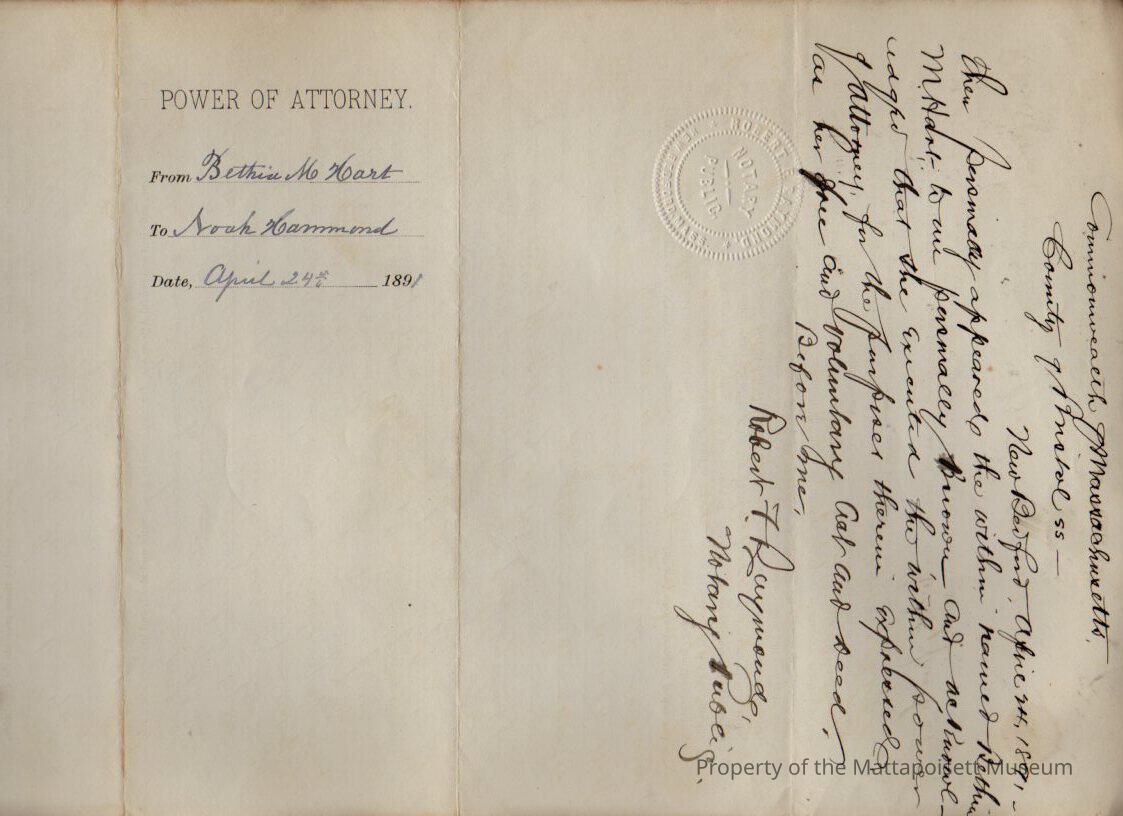 POWER OF ATTORNEY.
From Bethia M Hart
To Noah Hammond
Date, April 24th 1891
Commonwealth of Massachusetts.
County of Bristol ss —
New Bedford. April 24, 1891. —
Then personally appeared the within named Bethia
M. Hart, to me personally known and acknowl-
edged that she executed the within power
of attorney, for the purposes therein expressed
as her free and voluntary act and deed,
Before me,
Robert F. Raymond,
Notary Public.
ROBERT F. RAYMOND
NEW BEDFORD
NOTARY
PUBLIC
Property of the Mattapoisett Museum